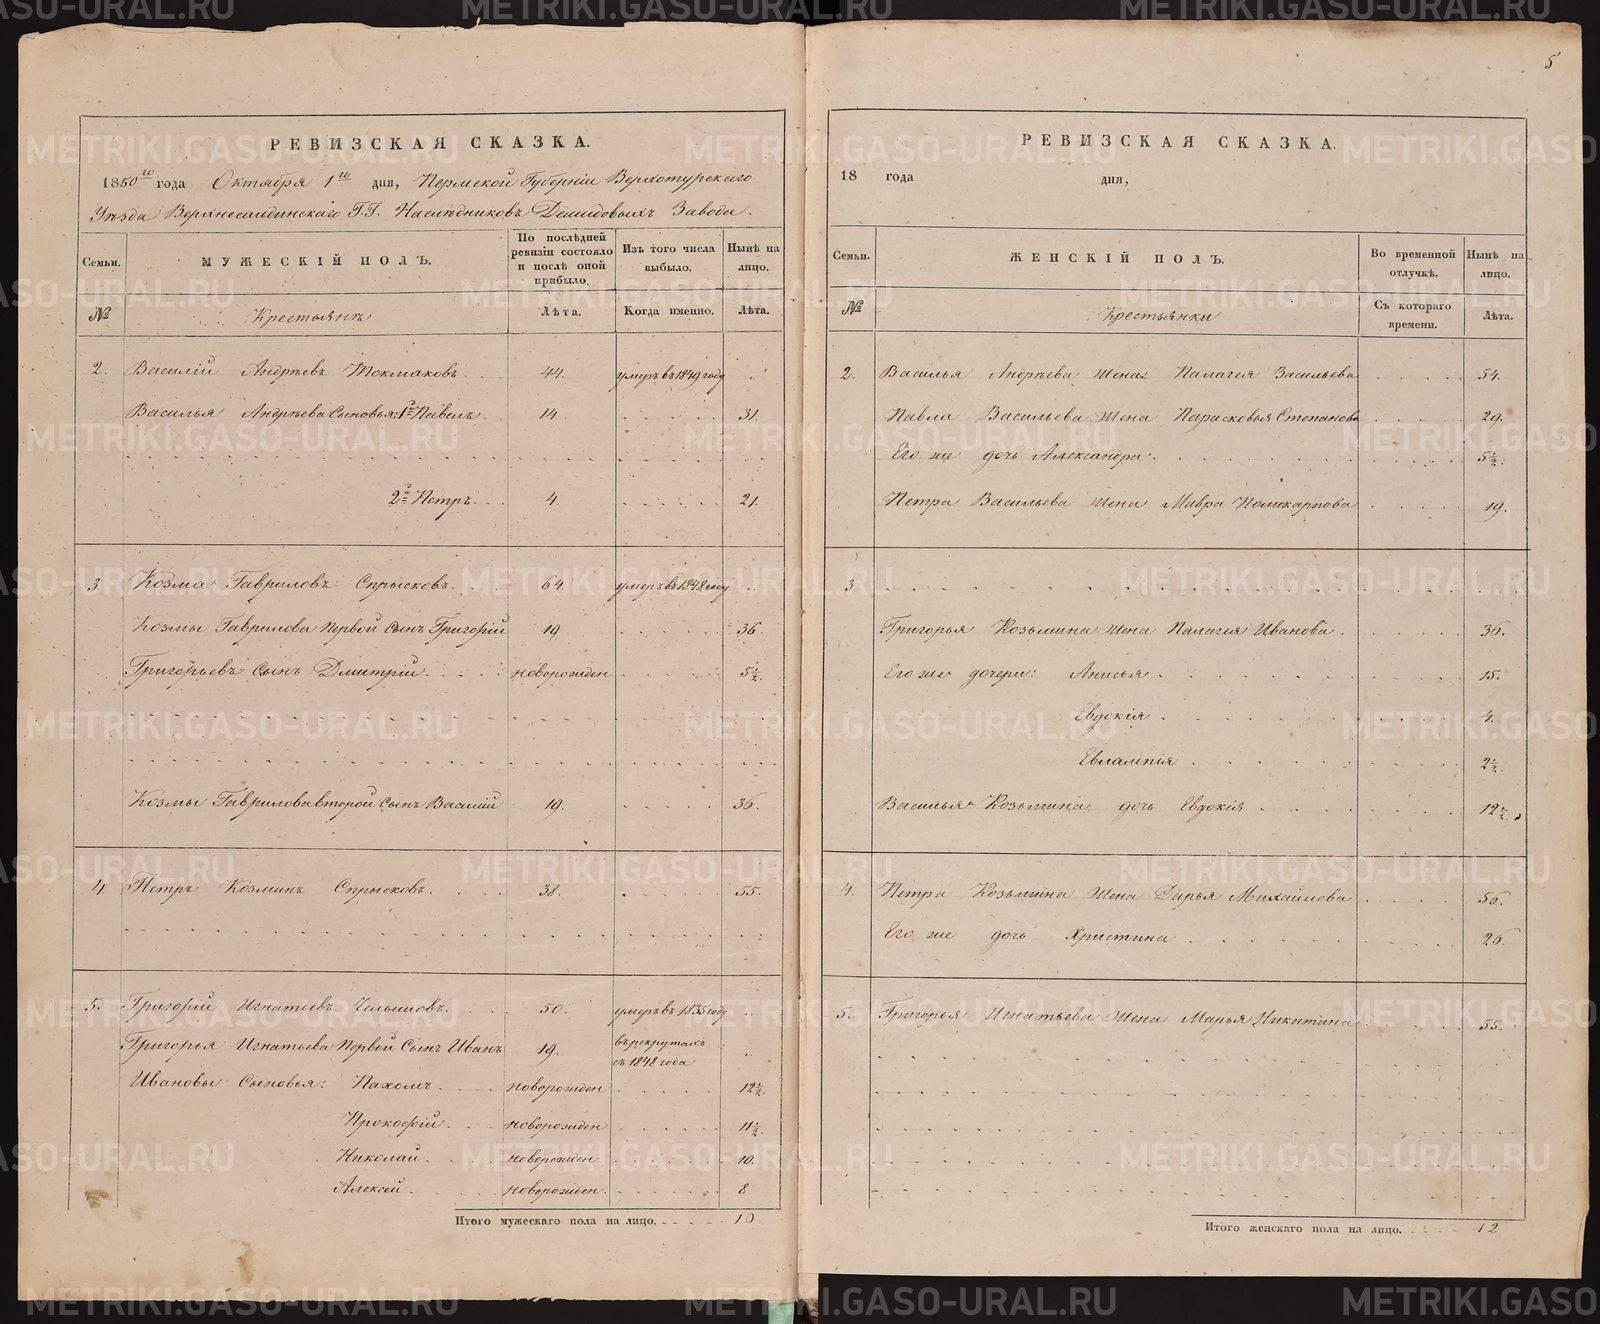 5
РЕВИЗСКАЯ СКАЗКА.
1850го года Октября 1го дня, Пермской Губерніи Верхотурскаго
Уѣзда Верхнесалдинскаго Г.Г. Наслѣдниковъ Демидовыхъ Завода.
Семьи.
МУЖЕСКІЙ ПОЛЪ.
По послѣдней ревизіи состояло и послѣ оной прибыло.
Изъ того числа выбыло.
Нынѣ на лицо.
№
Крестьянъ
Лѣта.
Когда именно.
Лѣта.
2. Василій Андрѣевъ Токмаковъ 44. умеръ въ 1849 году
Василья Андрѣева Сыновья: 1й Павелъ 14 31.
2й Петръ 4. 21.
3 Козма Гавриловъ Спрысковъ 64. умеръ въ 1848 году
Козмы Гаврилова Первой Сынъ Григорій 19 36.
Григорьевъ Сынъ Дмитрій новорожден 5½.
Козмы Гаврилова второй Сынъ Василій 19. 36.
4 Петръ Козминъ Спрысковъ. 38. 55.
5. Григорій Игнатьевъ Челышовъ. 50. умеръ въ 1835 году
Григорья Игнатьева Первой Сынъ Иванъ 19. въ рекрутахъ съ 1848 года
Ивановы Сыновья: Пахомъ новорожден 12½.
Прокофій новорожден 11½.
Николай новорожден 10.
Алексей новорожден. 8
Итого мужескаго пола на лицо. 10
РЕВИЗСКАЯ СКАЗКА.
18 года дня,
Семьи.
ЖЕНСКІЙ ПОЛЪ.
Во временной отлучкѣ.
Нынѣ на лицо.
№
Крестьянки
Съ котораго времени.
Лѣта.
2. Василья Андрѣева Жена Палагея Васильева 54.
Павла Васильева Жена Парасковья Степанова 29.
Его же дочь Александра 5½.
Петра Васильева Жена Мавра Поликарпова 19.
3
Григорья Козьмина Жена Палагея Иванова 36.
Его же дочери: Анисья 15.
Евдокія 4.
Евлампія 2½.
Василья Козьмина дочь Евдокія 12½.
4. Петра Козьмина Жена Дарья Михайлова 56.
Его же дочь Христина 26.
5. Григорья Игнатьева Жена Марья Никитина 55.
Итого женскаго пола на лицо. 12
METRIKI.GASO-URAL.RU